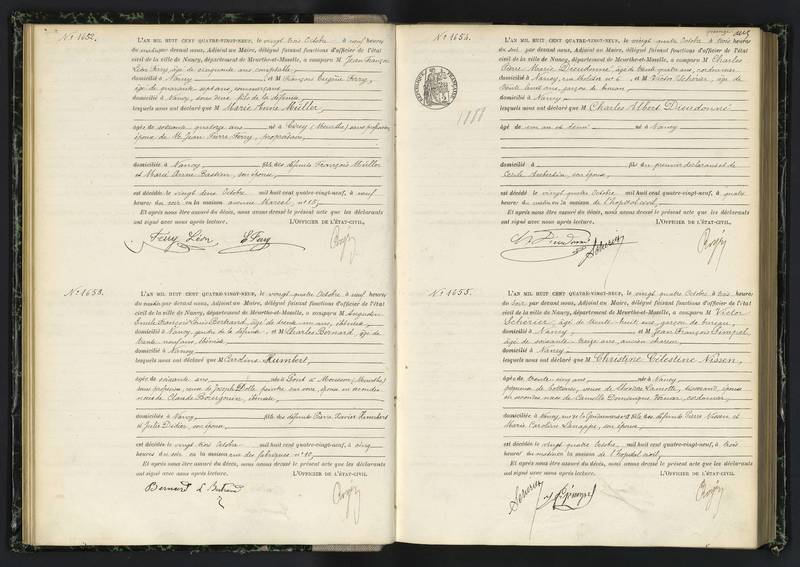 N° 1652.
L'AN MIL HUIT CENT QUATRE-VINGT-NEUF, le vingt trois Octobre à neuf heures
du matin par devant nous, Adjoint au Maire, délégué faisant fonctions d'officier de l'état
civil de la ville de Nancy, département de Meurthe-et-Moselle, a comparu M. Jean François
Léon Ferry, âgé de cinquante ans, comptable
domicilié à Nancy et M. François Eugène Ferry,
âgé de quarante sept ans, commerçant,
domicilié à Nancy, tous deux fils de la défunte
lesquels nous ont déclaré que M Marie Anne Müller,
âgée de soixante quatorze ans né à Cirey (Meurthe) sans profession,
épouse de M. Jean Pierre Ferry, propriétaire,
domiciliée à Nancy fille des défunts François Müller
et Marie Anne Bastien, son épouse
est décédée le vingt deux Octobre mil huit cent quatre-vingt-neuf, à neuf
heures du soir en la maison avenue n° 15
Et après nous être assuré du décès, nous avons dressé le présent acte que les déclarants
ont signé avec nous après lecture. L'OFFICIER DE L'ÉTAT-CIVIL,
Ferry Léon E Ferry
N° 1653.
L'AN MIL HUIT CENT QUATRE-VINGT-NEUF, le vingt quatre Octobre à neuf heures
du matin par devant nous, Adjoint au Maire, délégué faisant fonctions d'officier de l'état
civil de la ville de Nancy, département de Meurthe-et-Moselle, a comparu M.
Emile François Louis Bertrand, âgé de trente un ans, ébéniste,
domicilié à Nancy, gendre de la défunte et M. Charles Bernard, âgé de
trente neuf ans, ébéniste
domicilié à Nancy
lesquels nous ont déclaré que M Caroline Humbert,
âgée de soixante ans née à Pont à Mousson (Meurthe)
sans profession, veuve de Joseph Dolle, peintre sur verre, épouse en secondes
noces de Claude Bourguin, ébéniste,
domiciliée à Nancy, fille des défunts Pierre Xavier Humbert
et Julie Didier, son épouse
est décédée le vingt trois Octobre mil huit cent quatre-vingt-neuf, à cinq
heures du soir en la maison rue des fabriques n° 10
Et après nous être assuré du décès, nous avons dressé le présent acte que les déclarants
ont signé avec nous après lecture. L'OFFICIER DE L'ÉTAT-CIVIL,
Bernard L Bertrand
N° 1654.
L'AN MIL HUIT CENT QUATRE-VINGT-NEUF, le vingt quatre Octobre à trois heures
du soir par devant nous, Adjoint au Maire, délégué faisant fonctions d'officier de l'état
civil de la ville de Nancy, département de Meurthe-et-Moselle, a comparu M. Charles
Marie Dieudonné, âgé de trente quatre ans, cordonnier,
domicilié à Nancy, et M. Victor Scherier, âgé de
trente huit ans, garçon de bureau
domicilié à Nancy
lesquels nous ont déclaré que M Charles Albert Dieudonné
âgé de un an et demi né à Nancy
domicilié à fils du premier déclarant et de
son épouse
est décédé le vingt quatre Octobre mil huit cent quatre-vingt-neuf, à quatre
heures du matin en la maison de l'hôpital civil,
Et après nous être assuré du décès, nous avons dressé le présent acte que les déclarants
ont signé avec nous après lecture. L'OFFICIER DE L'ÉTAT-CIVIL,
Dieudonné
RÉPUBLIQUE FRANÇAISE
1888
N° 1655.
L'AN MIL HUIT CENT QUATRE-VINGT-NEUF, le vingt quatre Octobre à trois heures
du soir par devant nous, Adjoint au Maire, délégué faisant fonctions d'officier de l'état
civil de la ville de Nancy, département de Meurthe-et-Moselle, a comparu M. Victor
Scherier, âgé de trente huit ans, garçon de bureau,
domicilié à Nancy et M. Jean François
âgé de soixante treize ans, ancien
domicilié à Nancy
lesquels nous ont déclaré que M Christine Célestine Nissen,
âgée de trente cinq ans née à Nancy
veuve de épouse
en secondes noces de Camille Dominique cordonnier,
domiciliée à Nancy, fille des défunts Pierre Nissen et
Marie Caroline son épouse
est décédée le vingt quatre Octobre, mil huit cent quatre-vingt-neuf, à trois
heures du matin en la maison de l'hôpital civil,
Et après nous être assuré du décès, nous avons dressé le présent acte que les déclarants
ont signé avec nous après lecture. L'OFFICIER DE L'ÉTAT-CIVIL,